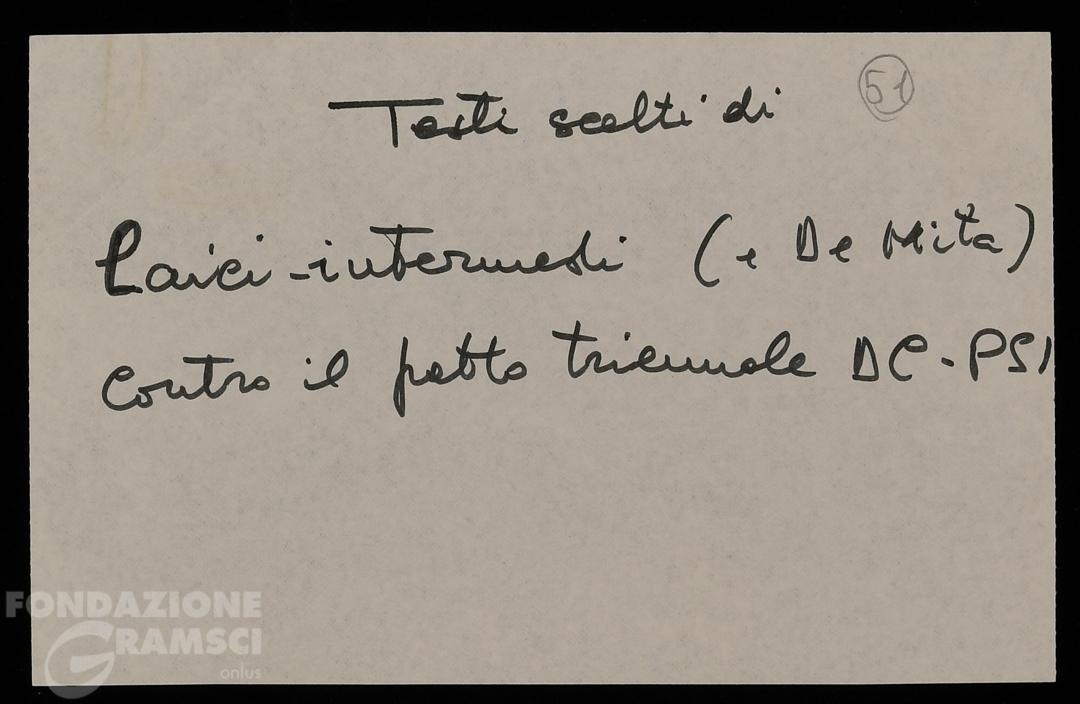 Testi scelti di
51
Laici-intermedi (e De Mita)
contro il patto triennale DC-PSI
FONDAZIONE
GRAMSCI
onlus